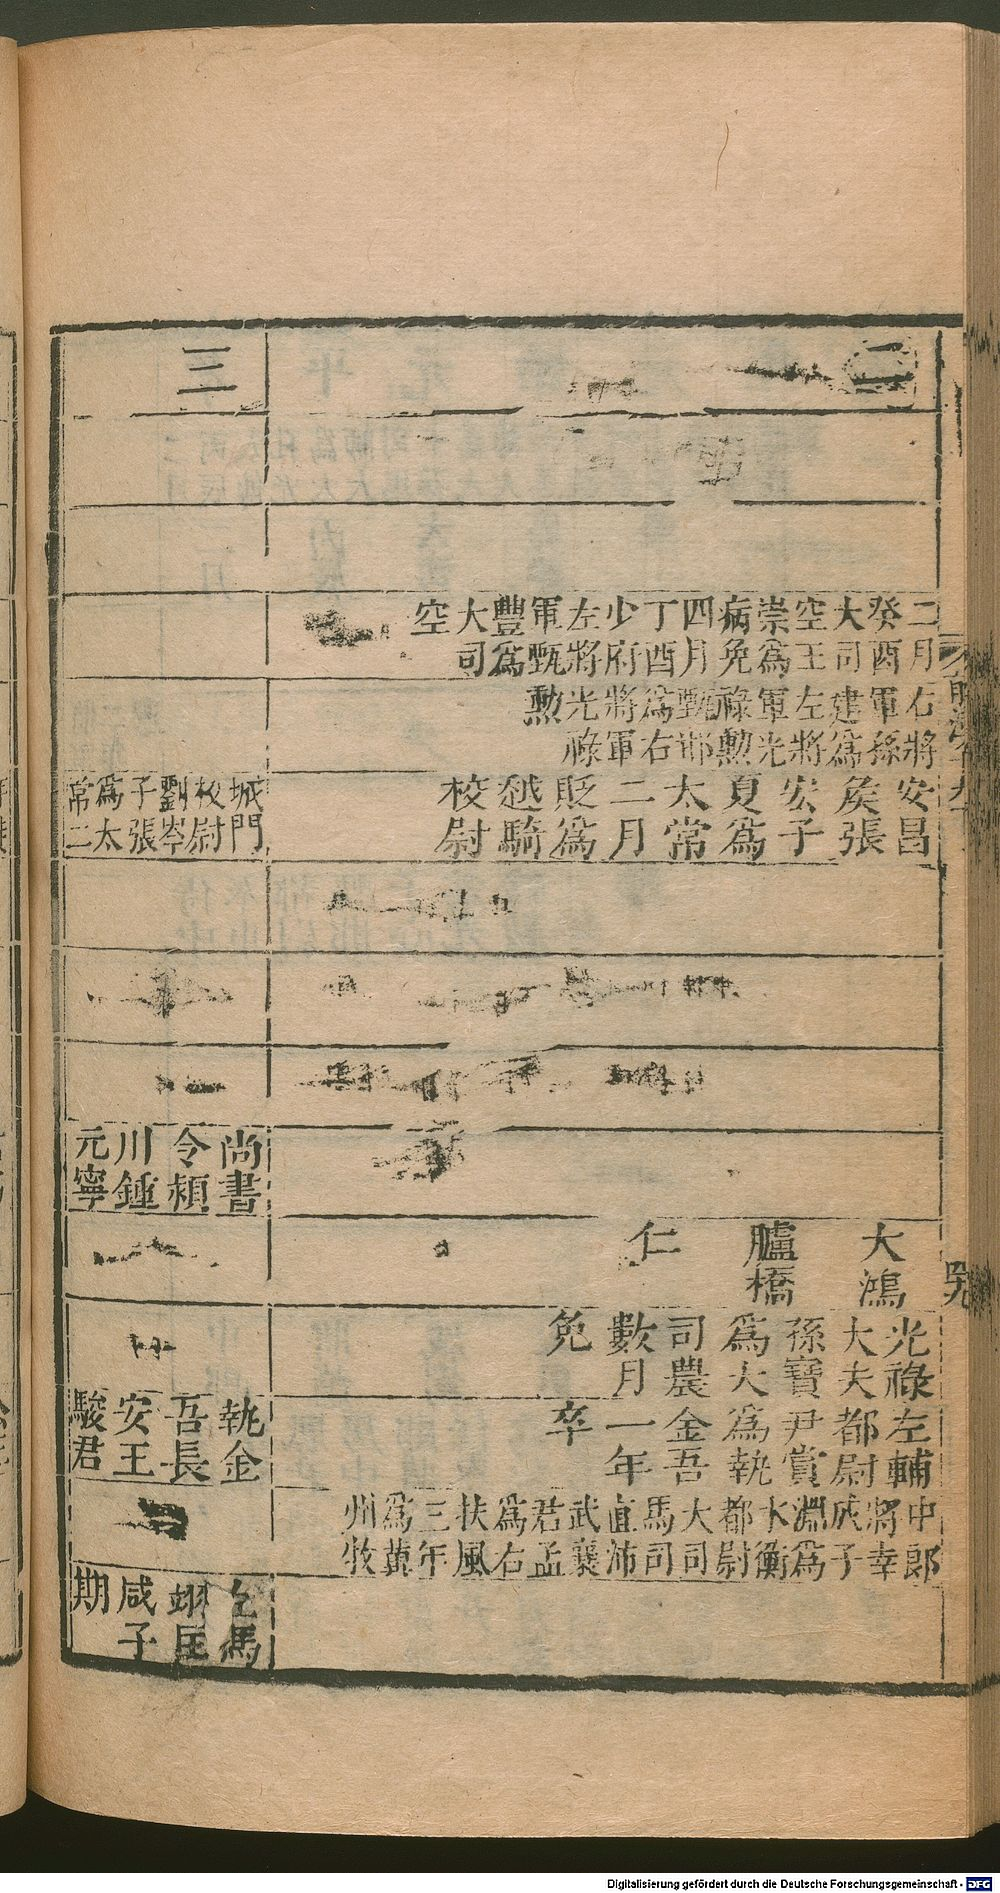 二
二月癸酉大司空王崇爲病免四月丁酉少府左將軍甄豐爲大司空
右將軍孫建爲左將軍光祿勲甄邯爲右將軍光祿勲
安昌矦張宏子夏爲太常二月貶爲越騎校尉
大鴻臚橋仁
光祿大夫孫寶爲大司農數月免
左輔都尉尹賞爲執金吾一年卒
中郎將幸成子淵爲水衡都尉大司馬司直沛武襄君孟爲右扶風三年爲冀州牧
三
城門校尉劉岑子張爲太常二
尚書令潁川鍾元寧
執金吾長安王駿君
左馮翊匡咸子期
Digitalisierung gefördert durch die Deutsche Forschungsgemeinschaft - DFG